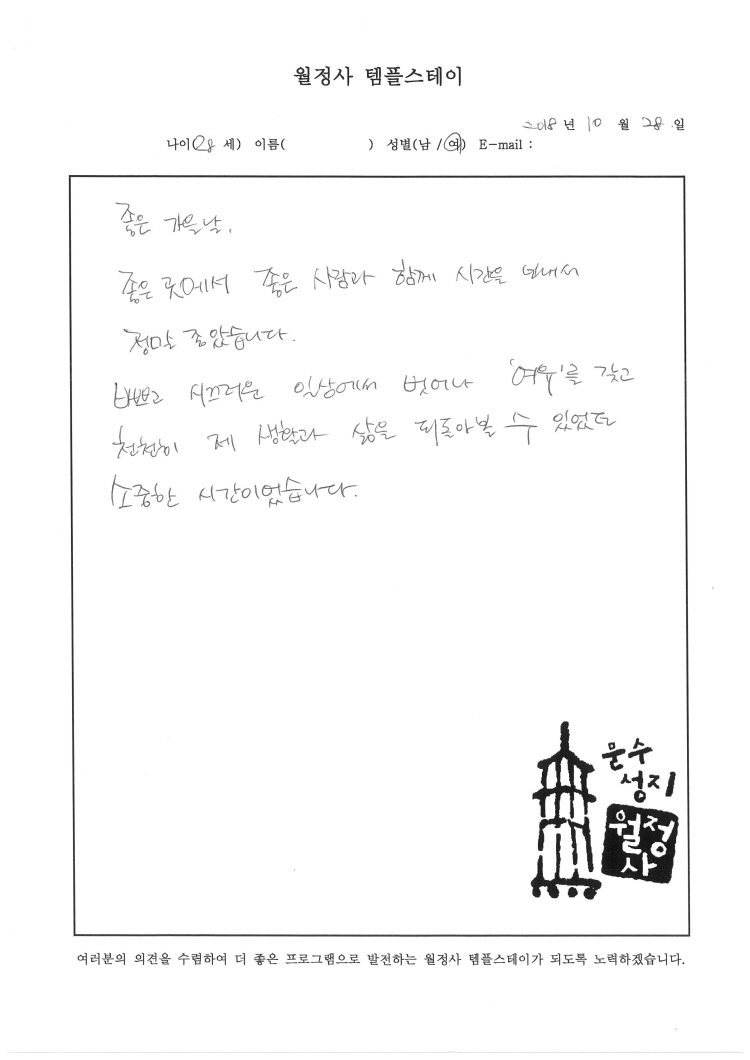 월정사 템플스테이
2018 년 10 월 28 일
나이(28 세) 이름( ) 성별(남 / 여) E-mail :
좋은 가을날,
좋은 곳에서 좋은 사람과 함께 시간을 보내서
정말 좋았습니다.
바쁘고 시끄러운 일상에서 벗어나 '여유'를 갖고
천천히 제 생활과 삶을 되돌아볼 수 있었던
소중한 시간이었습니다.
문수
성지
월정
사
여러분의 의견을 수렴하여 더 좋은 프로그램으로 발전하는 월정사 템플스테이가 되도록 노력하겠습니다.